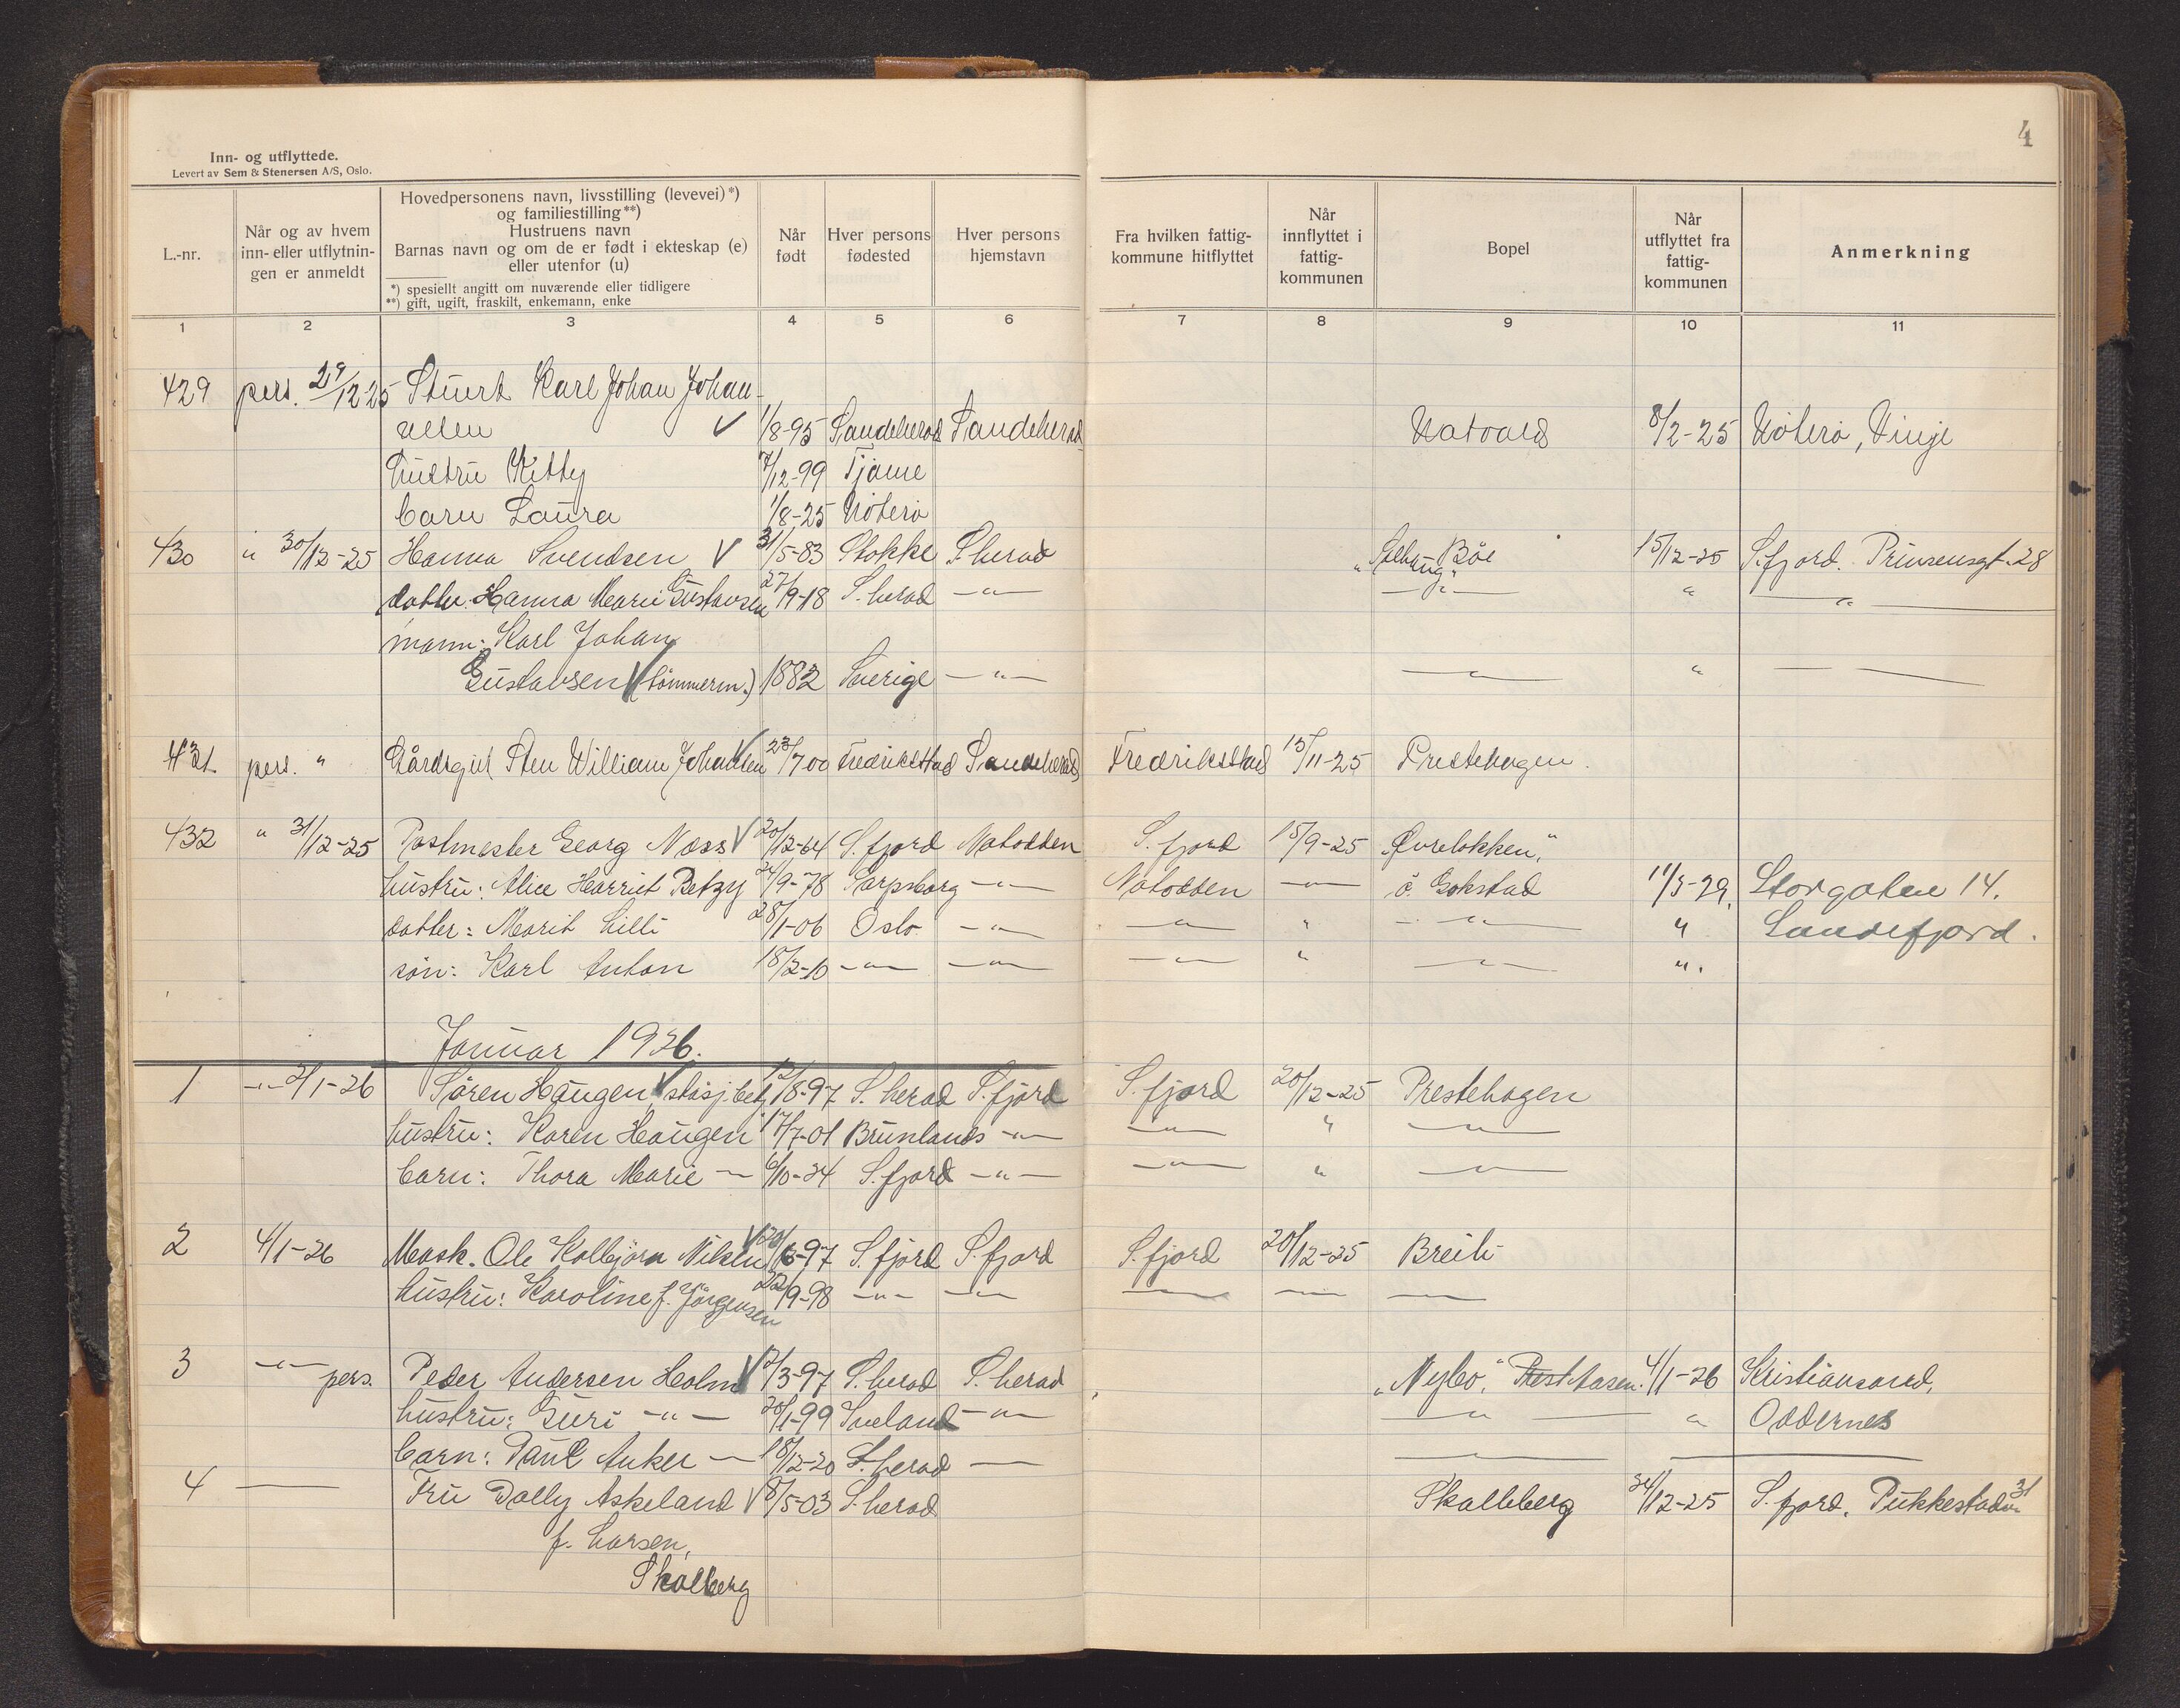 4
Inn- og utflyttede.
Levert av Sem & Stenersen A/S, Oslo.
L.-nr.
Når og av hvem inn- eller utflytnin- gen er anmeldt
Hovedpersonens navn, livsstilling (levevei)*)
og familiestilling**)
Hustruens navn
Barnas navn og om de er født i ekteskap (e)
eller utenfor (u)
*) spesiellt angitt om nuværende eller tidligere
**) gift, ugift, fraskilt, enkemann, enke
Når født
Hver persons fødested
Hver persons hjemstavn
Fra hvilken fattig- kommune hitflyttet
Når innflyttet i fattig- kommunen
Bopel
Når utflyttet fra fattig- kommunen
Anmerkning
1 2 3 4 5 6 7 8 9 10 11
429 pers. 29/12-25 Stuert Karl Johan Johan-
nsen V 1/8-95 Sandeherad Sandeherad 8/2-25 Nøterø, Vinje
hustru Kitty 7/12-99 Tjøme
barn Laura 1/8-25 Nøterø
430 " 30/12-25 Hanna Svendsen V 31/5-83 Stokke S.herad Bøe 15/12-25 S.fjord. Prinsensgt. 28
datter. Hanna Marie Gustavsen 27/9-18 S.herad -"- -"- " -"-
mann: Karl Johan
Gustavsen V (tømmerm.) 1882 Sverige -"- -"- "
431 pers. " Gårdsgut Sten William Johansen 23/7 00 Fredrikstad Sandeherad Fredrikstad 15/11-25 Prestehagen.
432 " 31/12-25 Postmester Georg Næss V 20/12-64 S.fjord Notodden S.fjord 15/9-25 "Øvreløkken"
hustru: Alice Harriet Betzy 24/9-78 Sarpsborg -"- Notodden -"- ø. Gokstad 11/3-29. Storgaten 14.
datter: Marit Lilli 28/1-06 Oslo -"- -"- " -"- " Sandefjord.
søn: Karl Anton 18/2-10 -"- -"- -"- " -"- ".
Januar 1926.
1 -"- 2/1-26 Søren Haugen V 12/8-97 S.herad S.fjord S.fjord 20/12-25 Prestehagen
hustru: Karen Haugen 17/7-01 Brunlanes -"- -"- " -"-
barn: Thora Marie - 6/10-24 S.fjord -"- -"- " -"-
2 4/1-26 Mask. Ole Kolbjørn Nilsen V 20/6-97 S.fjord S.fjord S.fjord 20/12-25 Breili
hustru: Karoline f. Jørgensen 22/9-98 -"- -"-
3 -"- pers. Peder Andersen Holm V 2/3-97 S.herad S.herad "Nybo", 4/1-26 Kristiansand,
hustru: Guri -"- 20/1-99 Sveland -"- -"- " Oddernes
barn: Paul Anker - 18/12-20 S.herad
4 Fru Dolly Askeland V 8/5-03 S.herad Skalleberg 12-25 S.fjord. Pukkestadv. 31
f. Larsen,
Skalleberg